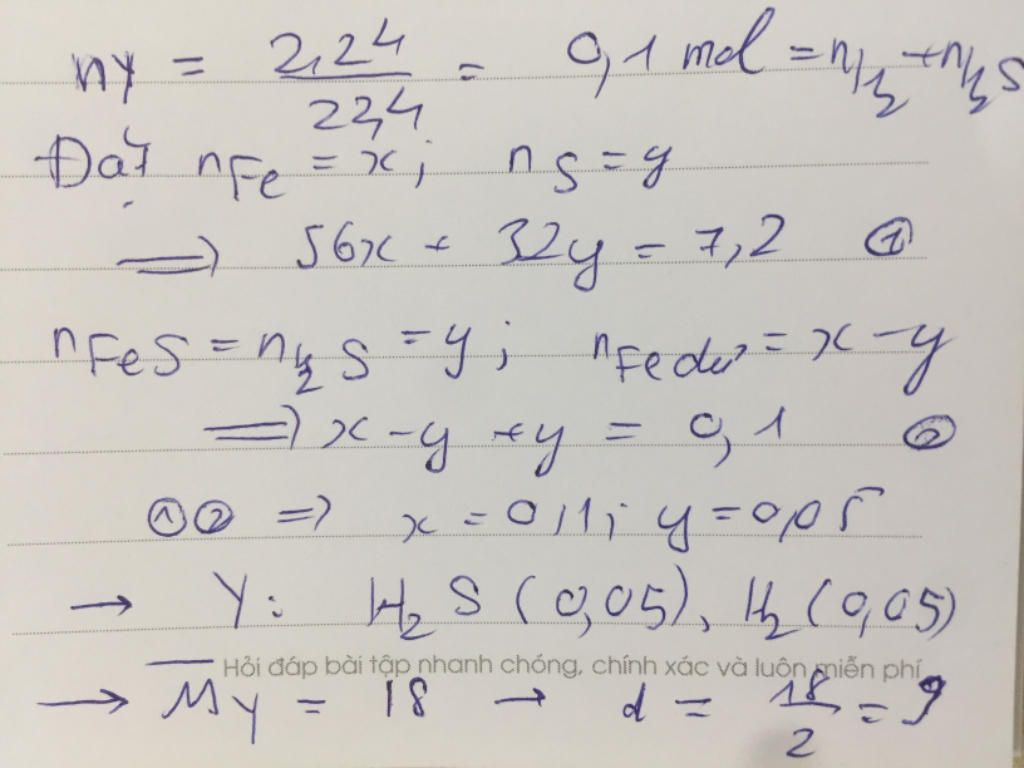 nY = 2,24 / 22,4 = 0,1 mol = nH2 + nH2S
Đặt nFe = x; nS = y
=> 56x + 32y = 7,2 ①
nFeS = nH2S = y; nFe dư = x - y
=> x - y + y = 0,1 ②
①② => x = 0,1; y = 0,05
→ Y: H2S (0,05), H2 (0,05)
Hỏi đáp bài tập nhanh chóng, chính xác và luôn miễn phí
→ MY = 18 → d = 18/2 = 9